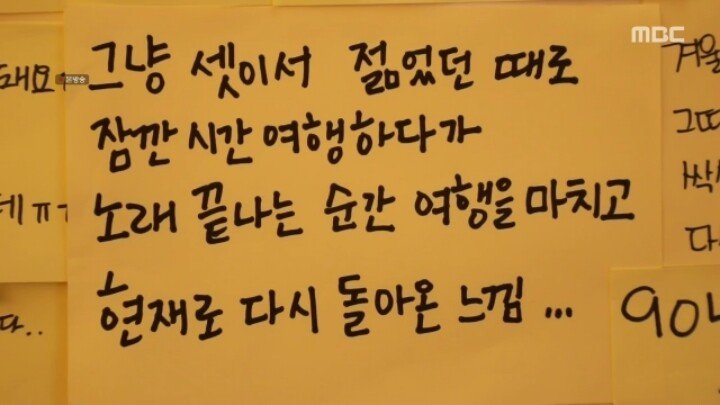 MBC
그냥 셋이서 젊었던 때로
잠깐 시간 여행하다가
노래 끝나는 순간 여행을 마치고
현재로 다시 돌아온 느낌 ...
돼요
데ㅠ
다..
겨울
그때
싹
다
90